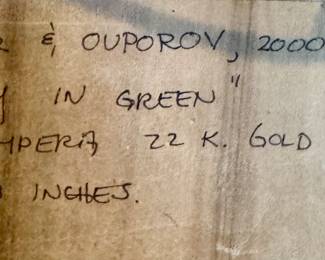 & OUPOROV, 2000
IN GREEN"
22 K. GOLD
INCHES.